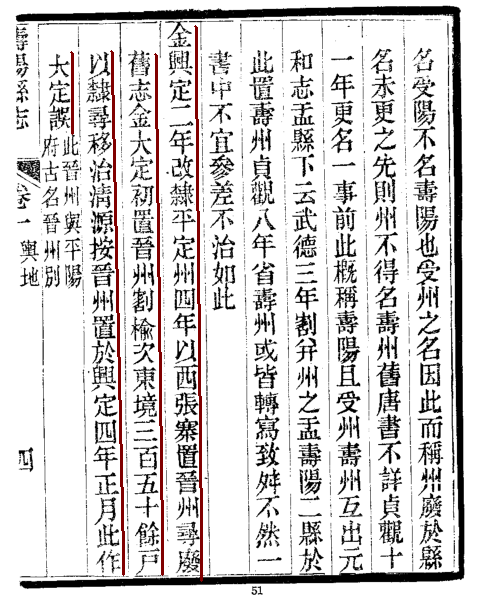 名受陽不名壽陽也受州之名因此而稱州廢於縣
名未更之先則州不得名壽州舊唐書不詳貞觀十
一年更名一事前此概稱壽陽且受州壽州互出元
和志盂縣下云武德三年割并州之盂壽陽二縣於
此置壽州貞觀八年省壽州或皆轉寫致舛不然一
書中不宜參差不治如此
金興定二年改隸平定州四年以西張寨置晉州尋廢
舊志金大定初置晉州割榆次東境三百五十餘戸
以隸尋移治清源按晉州置於興定四年正月此作
大定誤此晉州與平陽
府古名晉州別
壽陽縣志
卷一 輿地
四
51